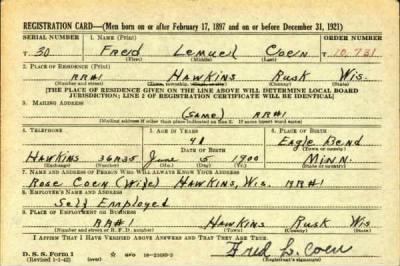 REGISTRATION CARD—(Men born on or after February 17, 1897 and on or before December 31, 1921)
SERIAL NUMBER 1. NAME (Print) ORDER NUMBER
T 30 Fred Lemuel Coen T 10,731
(First) (Middle) (Last)
2. PLACE OF RESIDENCE (Print)
RR#1 Hawkins Rusk Wis.
(Number and street) (Town, township, village, or city) (County) (State)
[THE PLACE OF RESIDENCE GIVEN ON THE LINE ABOVE WILL DETERMINE LOCAL BOARD
JURISDICTION; LINE 2 OF REGISTRATION CERTIFICATE WILL BE IDENTICAL]
3. MAILING ADDRESS
(Same) RR#1
[Mailing address if other than place indicated on line 2. If same insert word same]
4. TELEPHONE 5. AGE IN YEARS 6. PLACE OF BIRTH
41 Eagle Bend
DATE OF BIRTH (Town or county)
Hawkins 36R35 June 5 1900 Minn.
(Exchange) (Number) (Mo.) (Day) (Yr.) (State or country)
7. NAME AND ADDRESS OF PERSON WHO WILL ALWAYS KNOW YOUR ADDRESS
Rose Coen (Wife) Hawkins, Wis. RR#1
8. EMPLOYER'S NAME AND ADDRESS
Self Employed
9. PLACE OF EMPLOYMENT OR BUSINESS
RR#1 Hawkins Rusk Wis
(Number and street or R. F. D. number) (Town) (County) (State)
I AFFIRM THAT I HAVE VERIFIED ABOVE ANSWERS AND THAT THEY ARE TRUE.
D. S. S. Form 1
(Revised 1-1-42) (over) Fred L. Coen